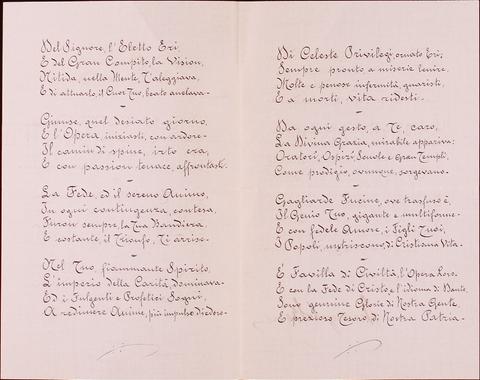 Del Signore, l'Eletto Eri,
E del Gran Compito, la Vision,
Nitida, nella Mente, T'aleggiava,
E di attuarlo, il Cuor Tuo, beato anelava-
Giunse, quel desiato giorno,
E l'Opera, iniziasti, con ardore-
Il camin di spine, irto era,
E con passion tenace, affrontasti-
La Fede, ed il sereno Animo,
In ogni contingenza, contesa,
Furon sempre, la Tua Bandiera,
E costante, il Trionfo, Ti arrise-
Nel Tuo, fiammante Spirito,
L'imperio della Carità, dominava-
Ed i Fulgenti e Profetici Sogni,
A redimere Anime, più impulso diedero-
Di Celeste Privilegi, ornato Eri;
Sempre pronto a miserie lenire,
Molte e penose infermità, guaristi,
E a morti, vita ridesti-
Da ogni gesto, a Te, caro,
La Divina Grazia, mirabile appariva:
Oratori, Ospizi, Scuole e Gran Templi,
Come prodigio, ovunque, sorgevano-
Gagliarde Fucine, ove trasfuso è,
Il Genio Tuo, gigante e multiforme-
E con fedele Amore, i Figli Tuoi,
I Popoli, nutriscono, di Cristiana Vita-
È Favilla di Civiltà, l'Opera Loro-
E con la Fede di Cristo, e l'idioma di Dante,
Sono genuine Glorie di Nostra Gente,
E prezioso Tesoro, di Nostra Patria-